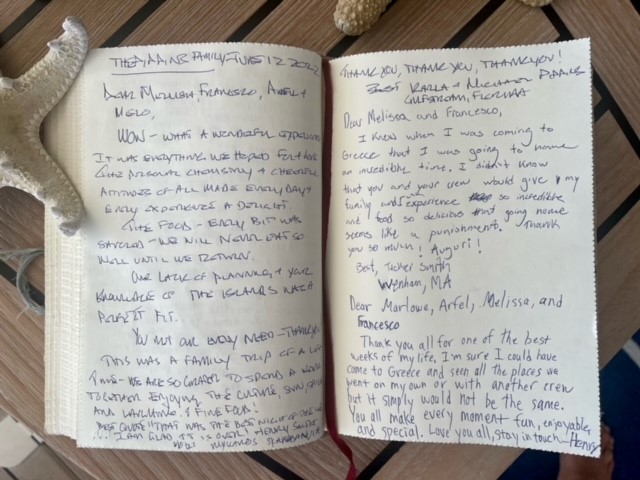 FAMILY/JUNE 12 2022
DEAR MELISSA, FRANCESCO,
WOW - WHAT A WONDERFUL EXPERIENCE
IT WAS EVERYTHING WE HOPED FOR & MORE
THE PERSONAL CHEMISTRY & CHEERFUL
ATTITUDES OF ALL MADE EVERY DAY &
EVERY EXPERIENCE A DELIGHT.
THE FOOD - EVERY BIT WAS
SAVORED - WE WILL NEVER EAT SO
WELL UNTIL WE RETURN.
OUR LACK OF PLANNING & YOUR
KNOWLEDGE OF THE ISLANDS WAS A
PERFECT FIT.
YOU MET OUR EVERY NEED - THANK YOU
THIS WAS A FAMILY TRIP OF A
TIME - WE ARE SO GRATEFUL TO SPEND A WEEK
TOGETHER ENJOYING THE CULTURE, SUN,
AND LAUGHING & FINE FOOD!
BEST QUOTE "THAT WAS THE BEST NIGHT OF
I AM GLAD IT IS OVER! HENRY SMITH
MYKONOS
THANK YOU, THANK YOU, THANK YOU!
BEST KARLA & MICHAEL
GULFSTREAM, FLORIDA
Dear Melissa and Francesco,
I knew when I was coming to
Greece that I was going to have
an incredible time, I didn't know
that you and your crew would give my
family and experience so incredible
and food so delicious that going home
seems like a punishment. Thank
you so much! Auguri!
Best, Tucker Smith
Wenham, MA
Dear Marlowe, Arfel, Melissa, and
Francesco
Thank you all for one of the best
weeks of my life, I'm sure I could have
come to Greece and seen all the places we
went on my own or with another crew
but it simply would not be the same.
You all make every moment fun, enjoyable,
and special. Love you all, stay in touch - Henry